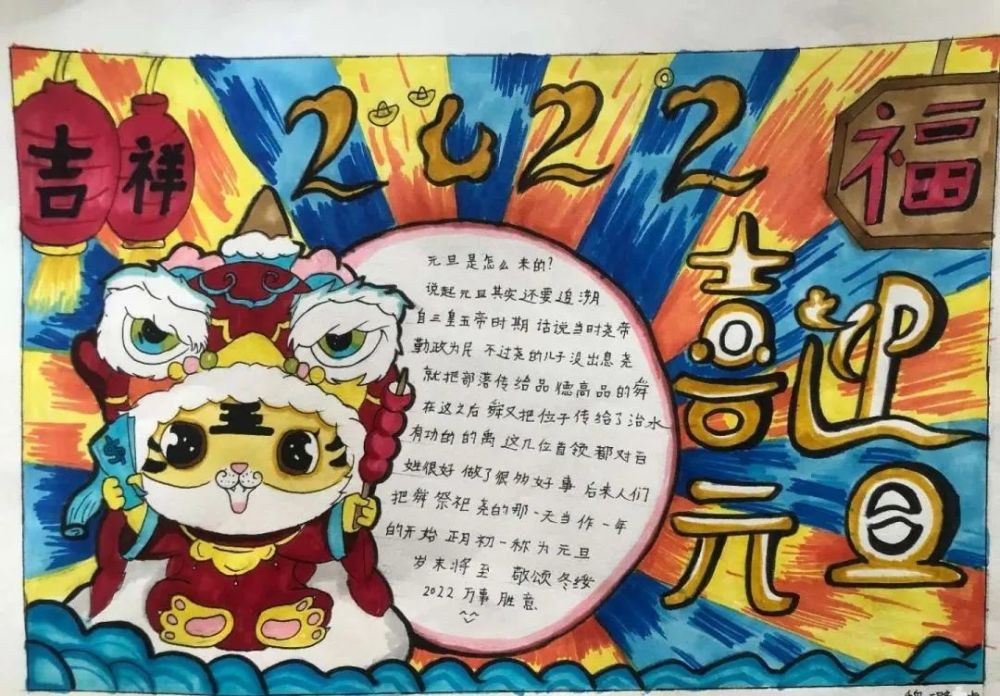 吉祥
2022
福
喜迎
元旦
元旦是怎么来的?
说起元旦其实还要追溯
自三皇五帝时期 话说当时尧帝
勤政为民 不过尧的儿子没出息尧
就把部落传给品德高品的舜
在这之后舜又把位子传给了治水
有功的的禹 这几位首领都对百
姓很好 做了很多好事 后来人们
把舜祭祀尧的那一天当作一年
的开始 正月初一称为元旦
岁末将至 敬颂冬绥
2022 万事胜意
^^